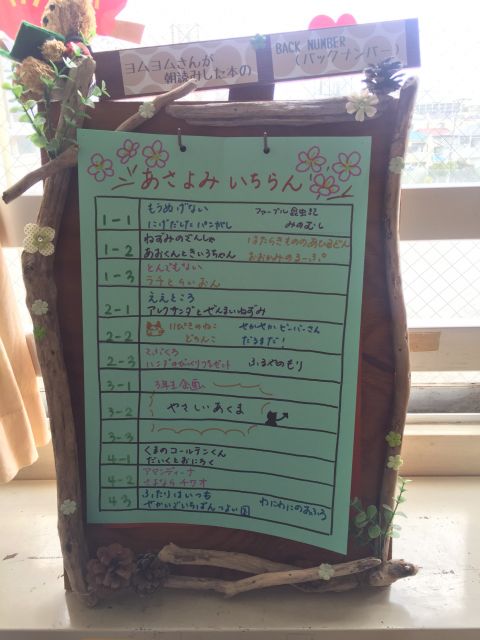 ヨムヨムさんが
朝読みした本の
BACK NUMBER
(バックナンバー)
あさよみ いちらん
1-1 もうぬげない ファーブル昆虫記
にげだしたパンがし みのむし
1-2 ねずみのでんしゃ はたらきもののあひるどん
あおくんときいろちゃん おおかみのるーぷ
1-3 とんでもない
ラチとらいおん
2-1 ええところ
アレクサンダとぜんまいねずみ
2-2 11ぴきのねこ せかせかビーバーさん
どろんこ だるまだ!
2-3 てぶくろ
ハンダのびっくりプレゼント ふるやのもり
3-1 3年生企画
3-2 やさしいあくま
3-3
4-1 くまのコールテンくん
だいくとおにろく
4-2 アマンディーナ
さよなら チワオ
4-3 ふたりはいつも わにわにのおふろ
せかいでいちばんつよい国